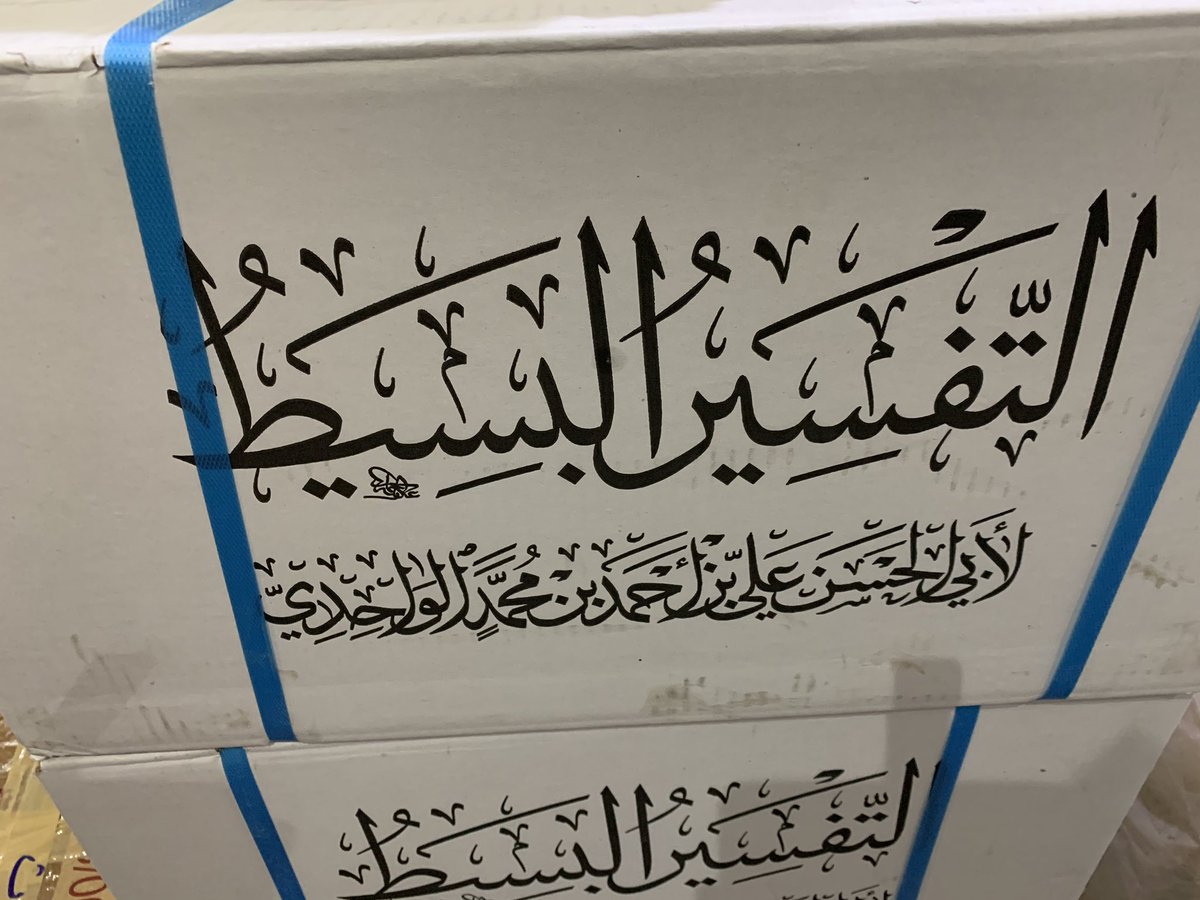 التَّفْسِيرُ البَسِيطُ
لأَبِي الحَسَن عَلي بن أحمَد بن مُحمَّد الوَاحِدِيّ
التَّفْسِيرُ البَسِيطُ